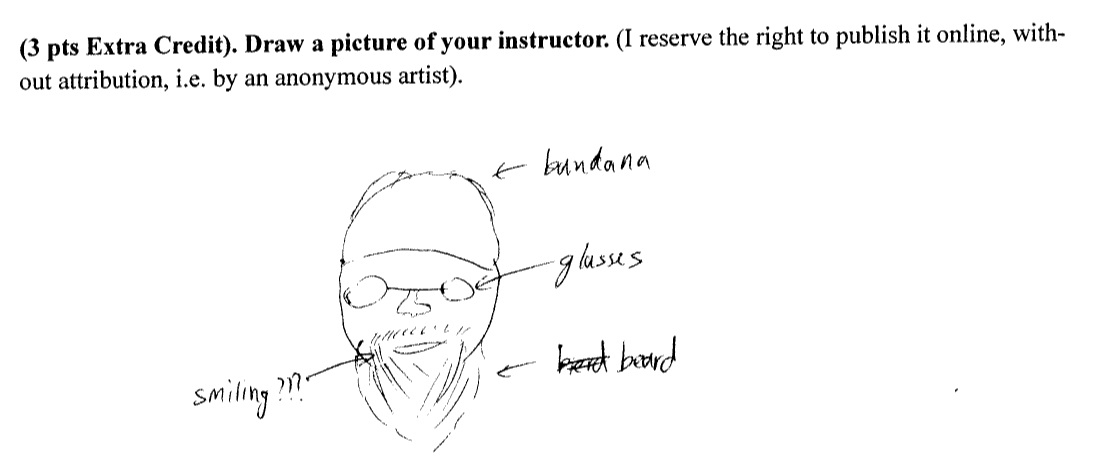 (3 pts Extra Credit). Draw a picture of your instructor. (I reserve the right to publish it online, with-
out attribution, i.e. by an anonymous artist).
← bandana
glasses
← beard
smiling???